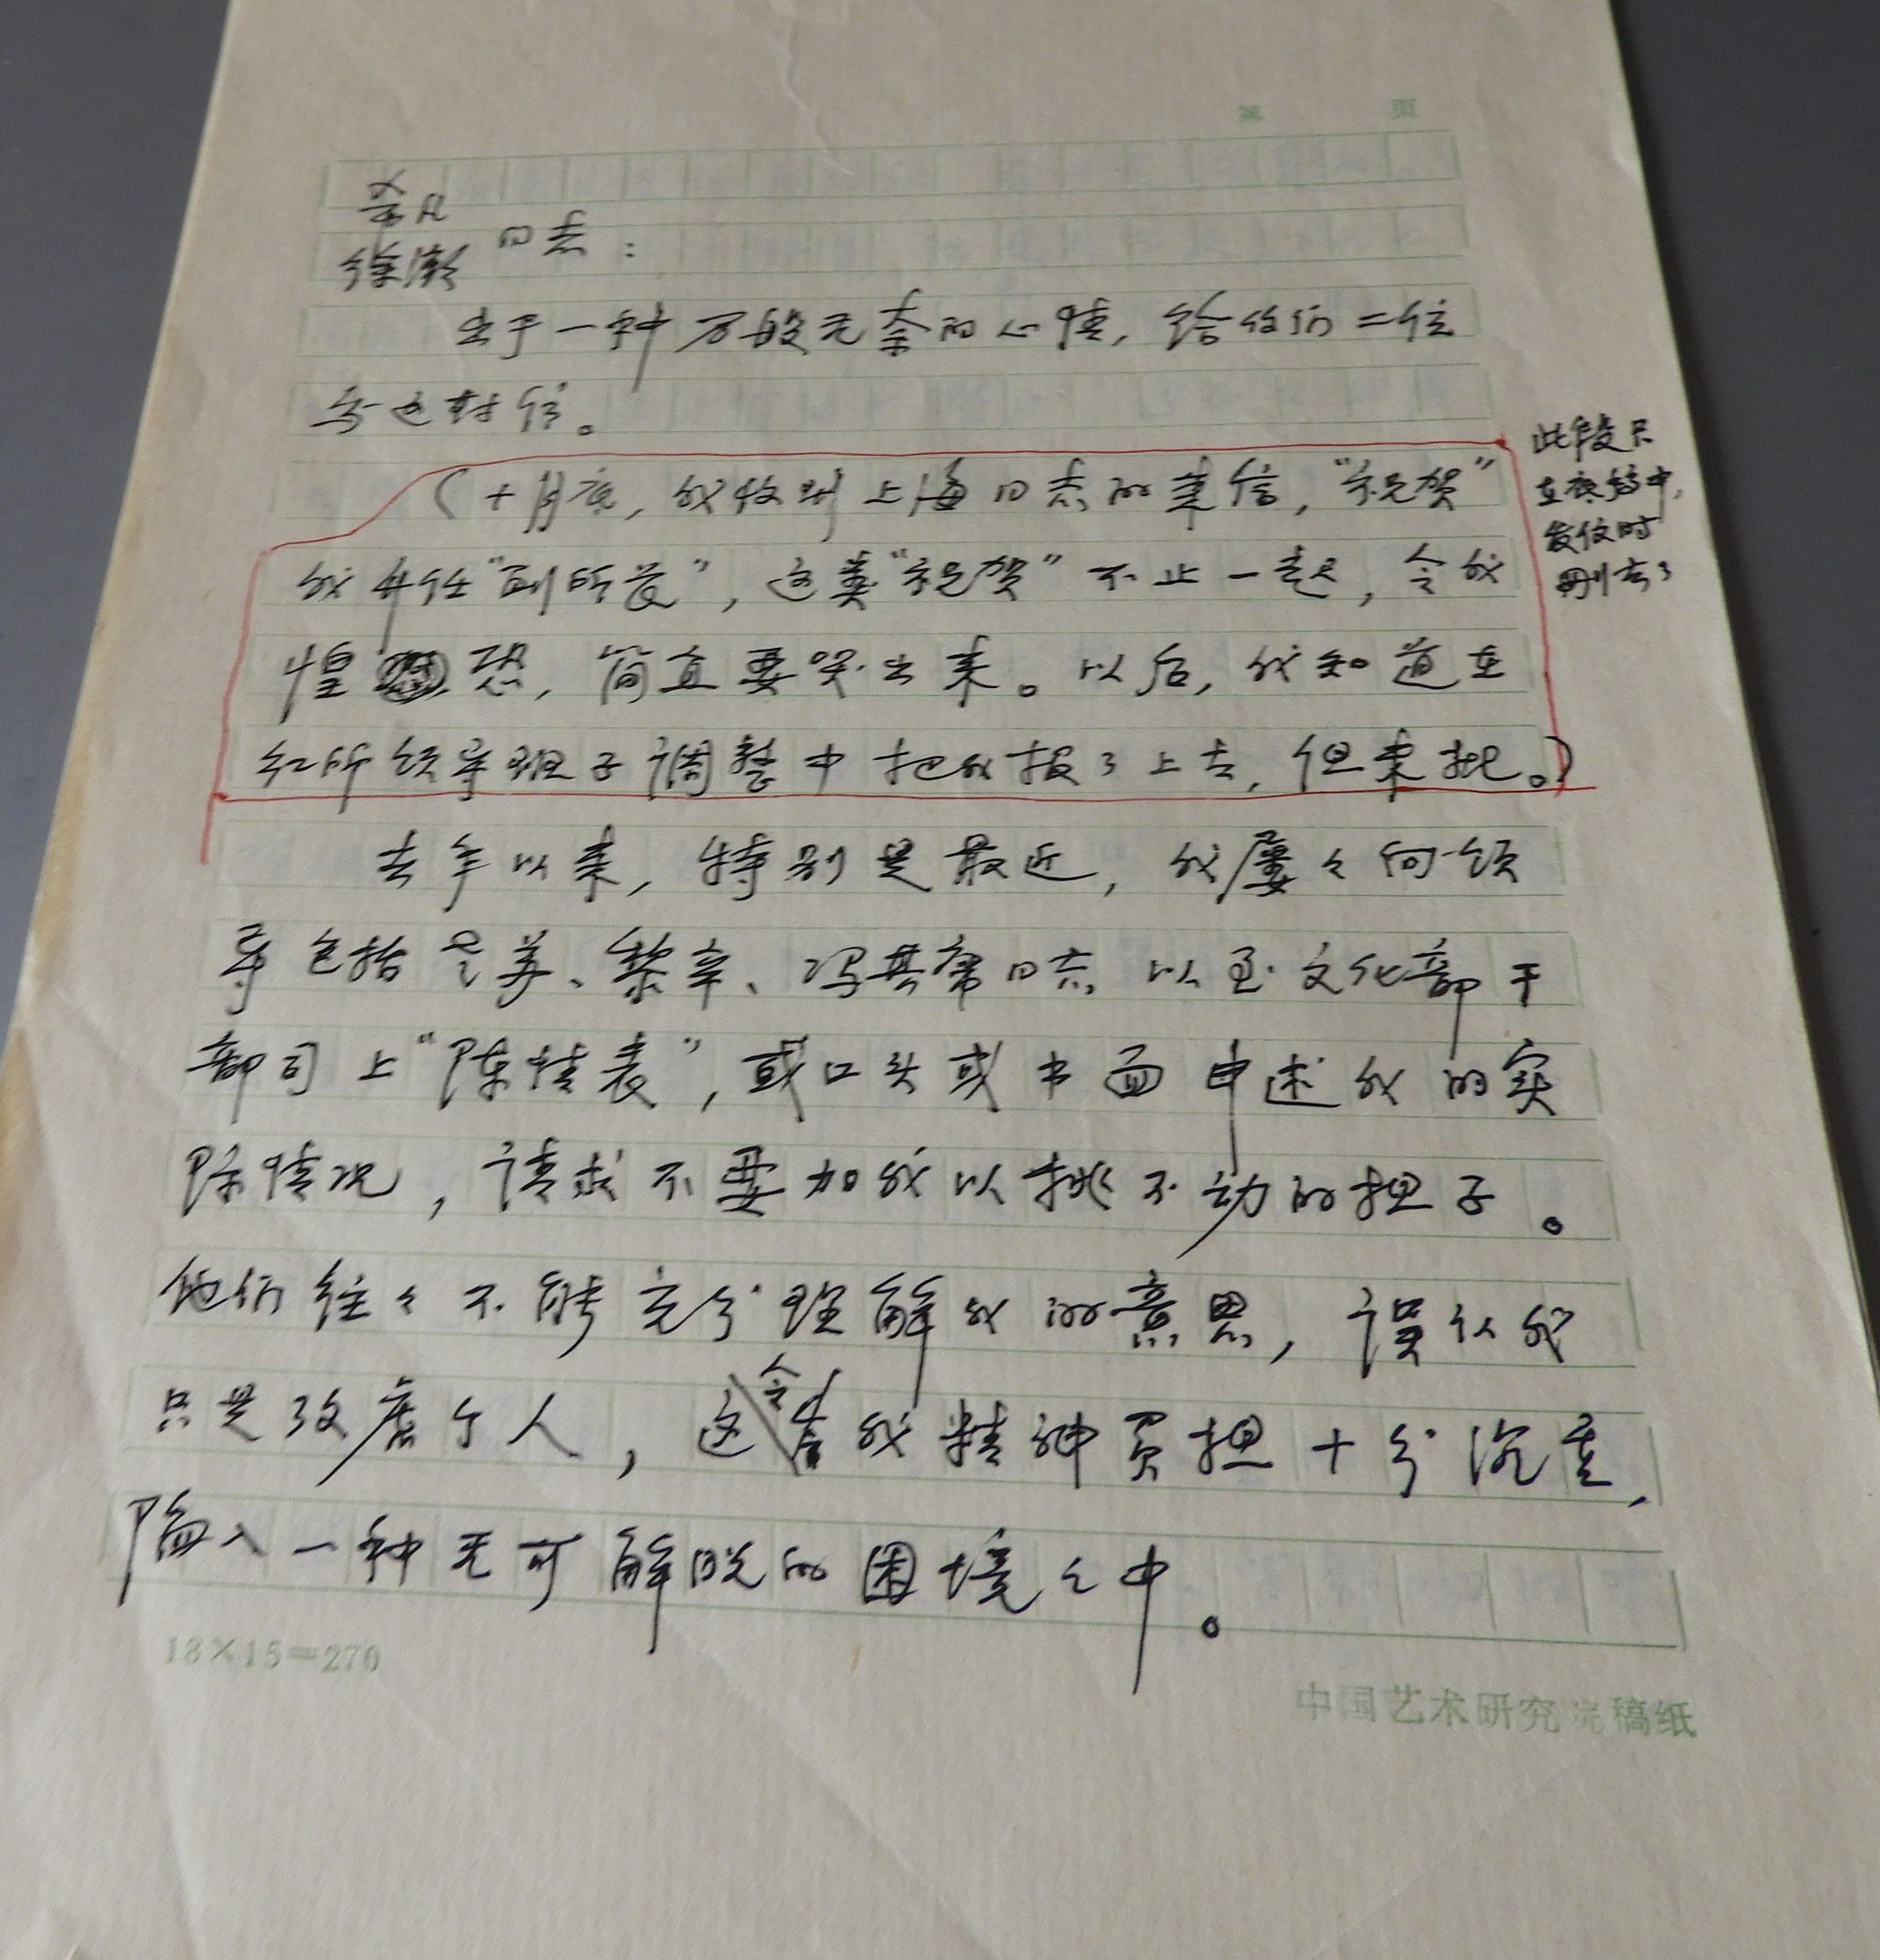 第 页
希凡
徐潮 同志：
出于一种万般无奈的心情，给你们二位
写这封信。
（十月底，我收到上海同志的来信，“祝贺”
我升任“副所长”，这类“祝贺”不止一起，令我
惶恐，简直要哭出来。以后，我知道在
红所领导班子调整中把我报了上去，但未批。）
此段只
在底稿中，
发信时
删去了
去年以来，特别是最近，我屡々向领
导包括 、黎辛、冯其庸同志以至文化部干
部司上“陈情表”，或口头或书面申述我的实
际情况，请求不要加我以挑不动的担子。
他们往々不能充分理解我的意思，误认我
只是考虑个人，这令我精神负担十分沉重，
陷入一种无可解脱的困境之中。
18×15=270
中国艺术研究院稿纸